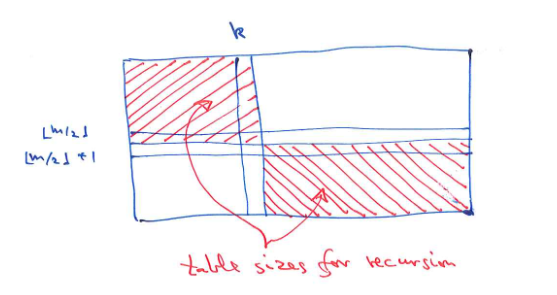 k
⌊m/2⌋
⌊m/2⌋ +1
table sizes for recursion